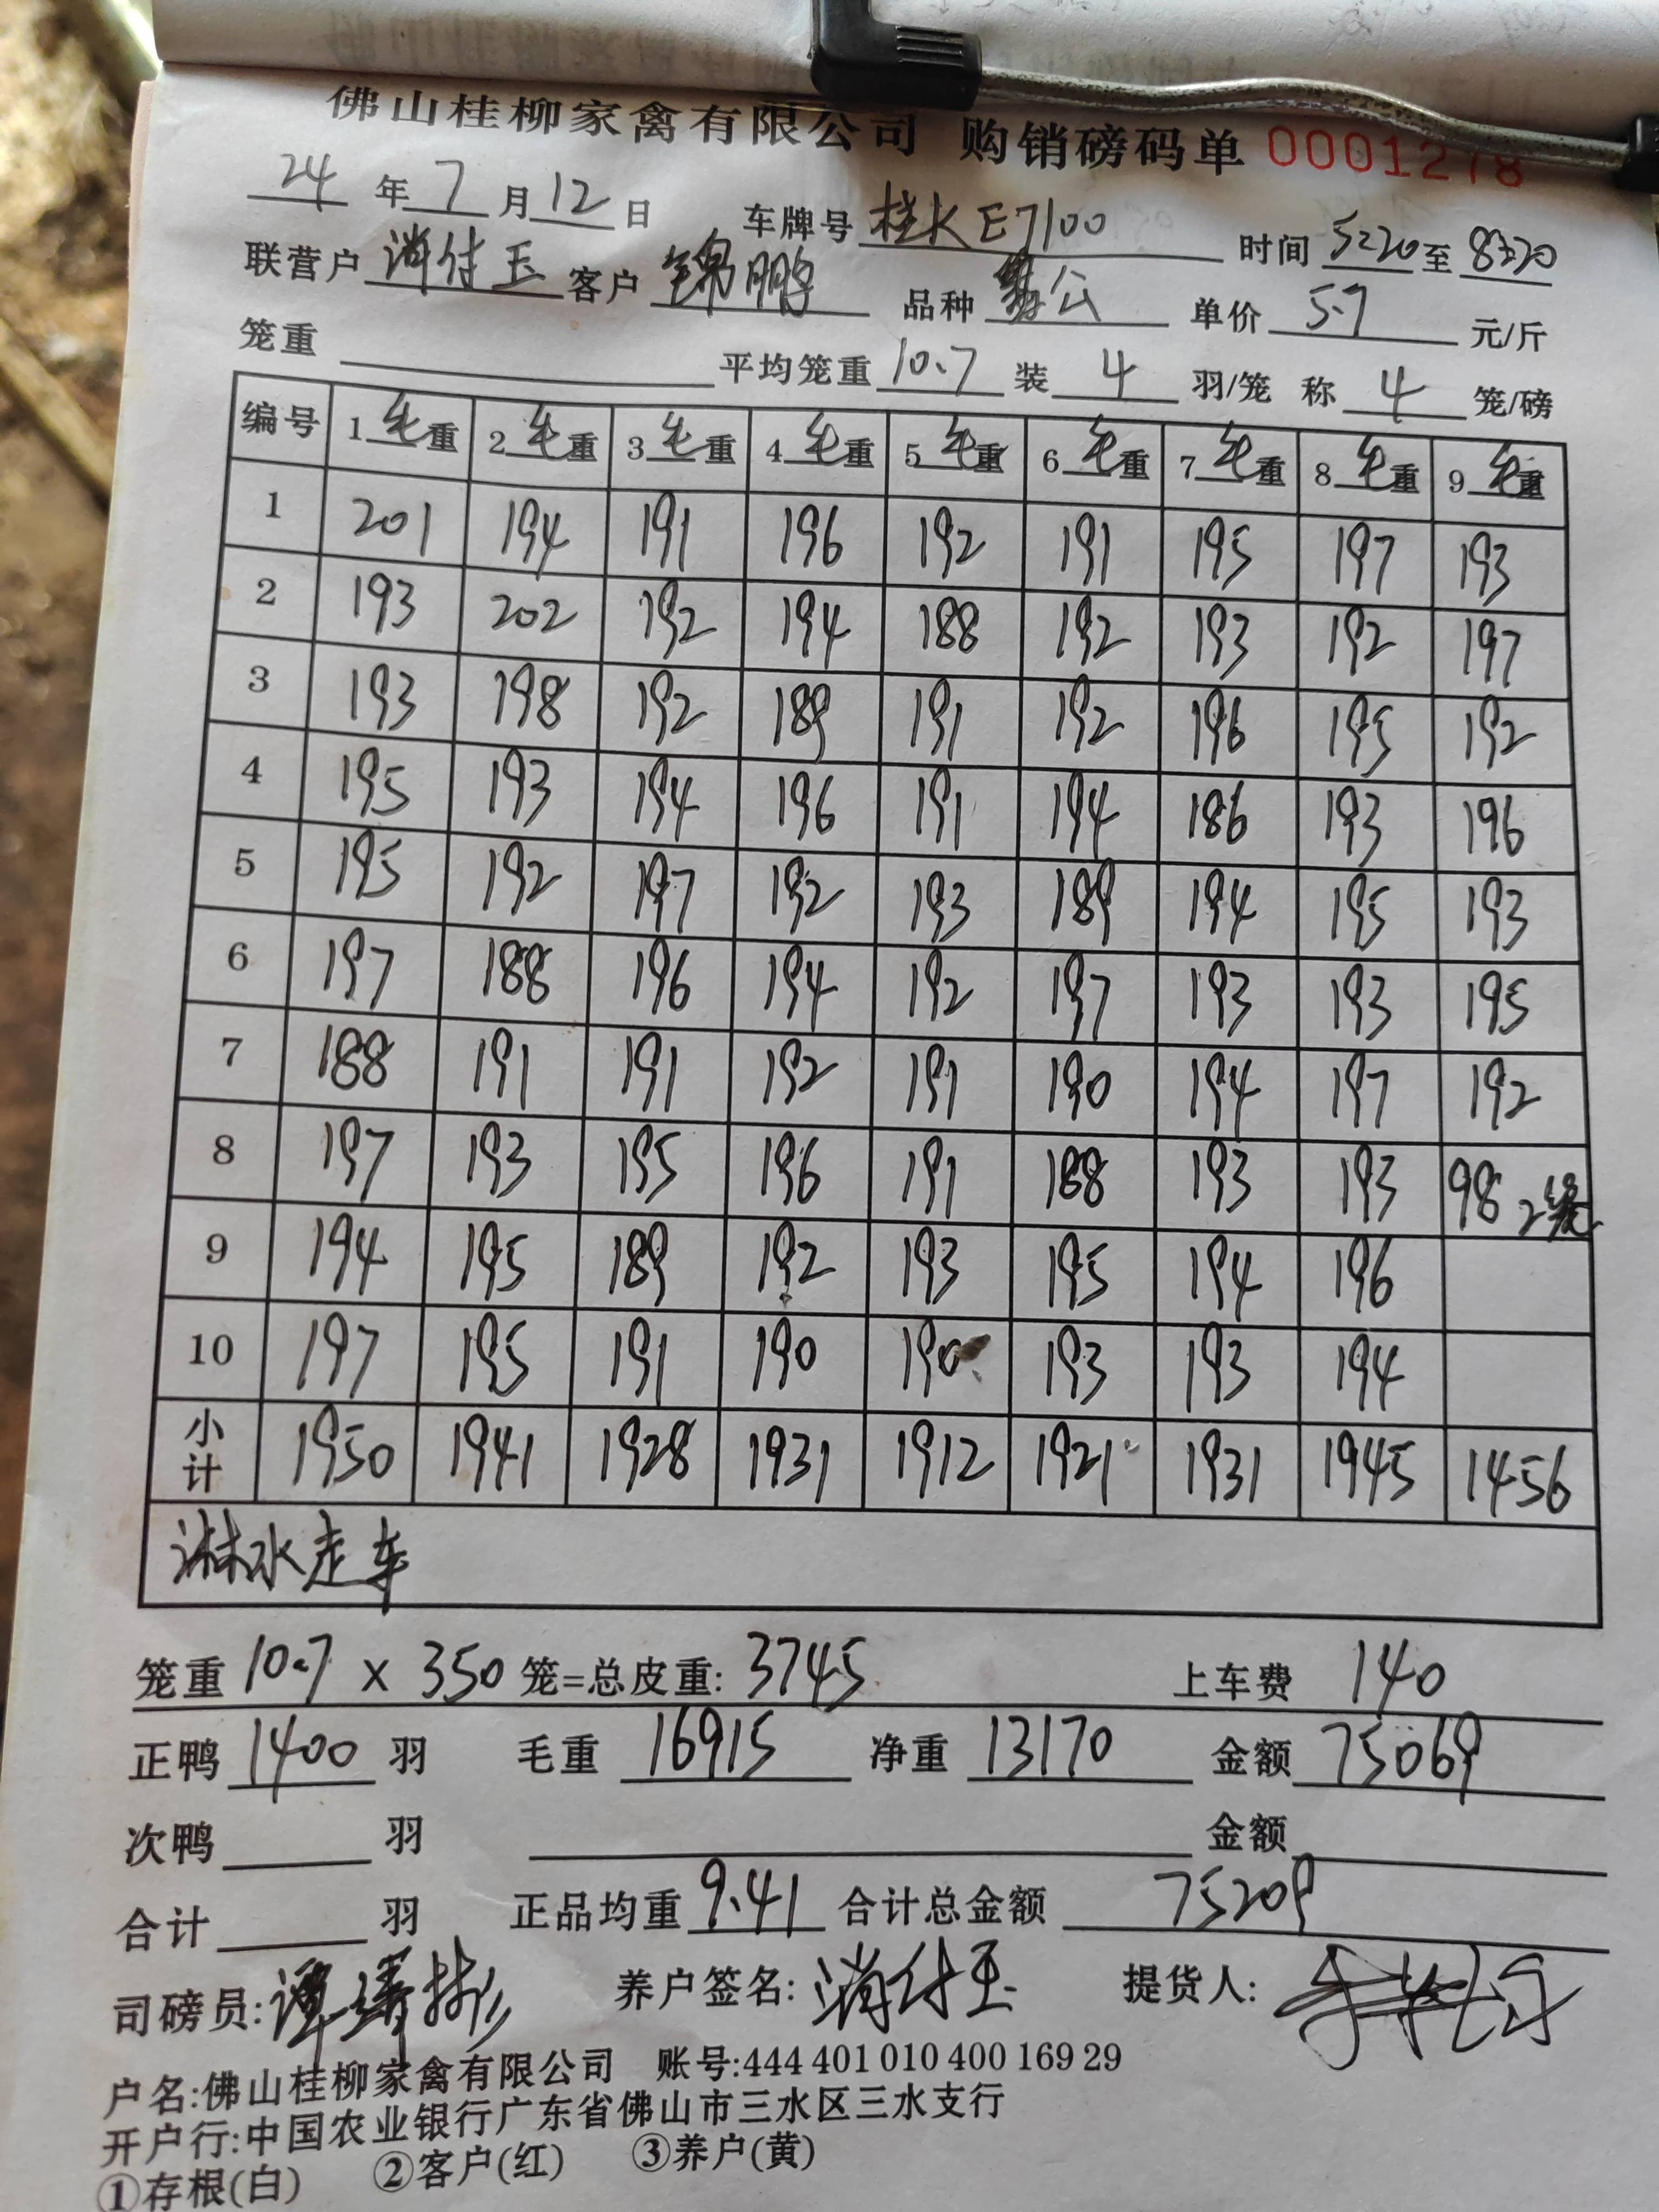 佛山桂柳家禽有限公司 购销磅码单 0001278
24 年 7 月 12 日 车牌号 桂K E7100 时间 5:20 至 8:20
联营户 付玉 客户 锦鹏 品种 公 单价 5.7 元/斤
笼重 平均笼重 10.7 装 4 羽/笼 称 4 笼/磅
编号 1 毛重 2 毛重 3 毛重 4 毛重 5 毛重 6 毛重 7 毛重 8 毛重 9 毛重
1 201 194 191 196 192 191 195 197 193
2 193 202 192 194 188 192 193 192 197
3 193 198 192 189 191 192 196 195 192
4 195 193 194 196 191 194 186 193 196
5 195 192 197 192 193 189 194 195 193
6 197 188 196 194 192 197 193 193 195
7 188 191 191 192 191 190 194 197 192
8 197 193 195 196 191 188 193 193 98 2笼
9 194 195 189 192 193 195 194 196
10 197 195 191 190 190 193 193 194
小计 1950 1941 1928 1931 1912 1921 1931 1945 1456
淋水走车
笼重 10.7 x 350 笼=总皮重: 3745 上车费 140
正鸭 1400 羽 毛重 16915 净重 13170 金额 75069
次鸭 羽 金额
合计 羽 正品均重 9.41 合计总金额 75209
司磅员: 养户签名: 付玉 提货人:
户名:佛山桂柳家禽有限公司 账号:444 401 010 400 169 29
开户行:中国农业银行广东省佛山市三水区三水支行
①存根(白) ②客户(红) ③养户(黄)